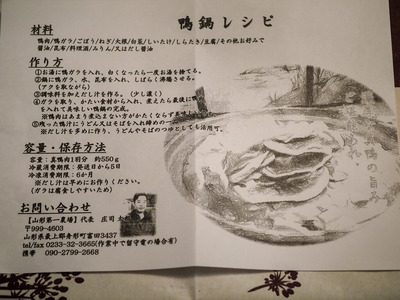 鴨鍋レシピ
材料
鴨肉/鴨ガラ/ごぼう/ねぎ/大根/白菜/しいたけ/しらたき/豆腐/その他お好みで
醤油/昆布/料理酒/みりん/又はだし醤油
作り方
①お湯に鴨ガラを入れ、白くなったら一度お湯を捨てる。
②鍋に鴨ガラ、水、昆布を入れ、しばらく沸騰させる。
(アクを取ながら)
③調味料を加えだし汁を作る。(少し濃く)
④ガラを取り、かたい素材から入れ、煮えたら最後に
を入れて美味しい鴨鍋の完成。
※鴨肉はあまり煮込まない方がかたくならず美味しい
⑤残った鴨汁にうどん又はそばを入れ締めの
※だし汁を多めに作り、うどんやそばのつゆとしても活用可。
容量・保存方法
容量:真鴨肉1羽分 約550g
冷蔵消費期限:発送日から5日
冷凍消費期限:6か月
※だし汁は早めにお作りください。
(ガラは痛まやすいため)
お問い合わせ
【山形第一農場】代表 庄司
〒999-4603
山形県最上郡舟形町富田3437
tel/fax 0233-32-3665(作業中で留守電の場合有)
携帯 090-2799-2668
鴨の旨み